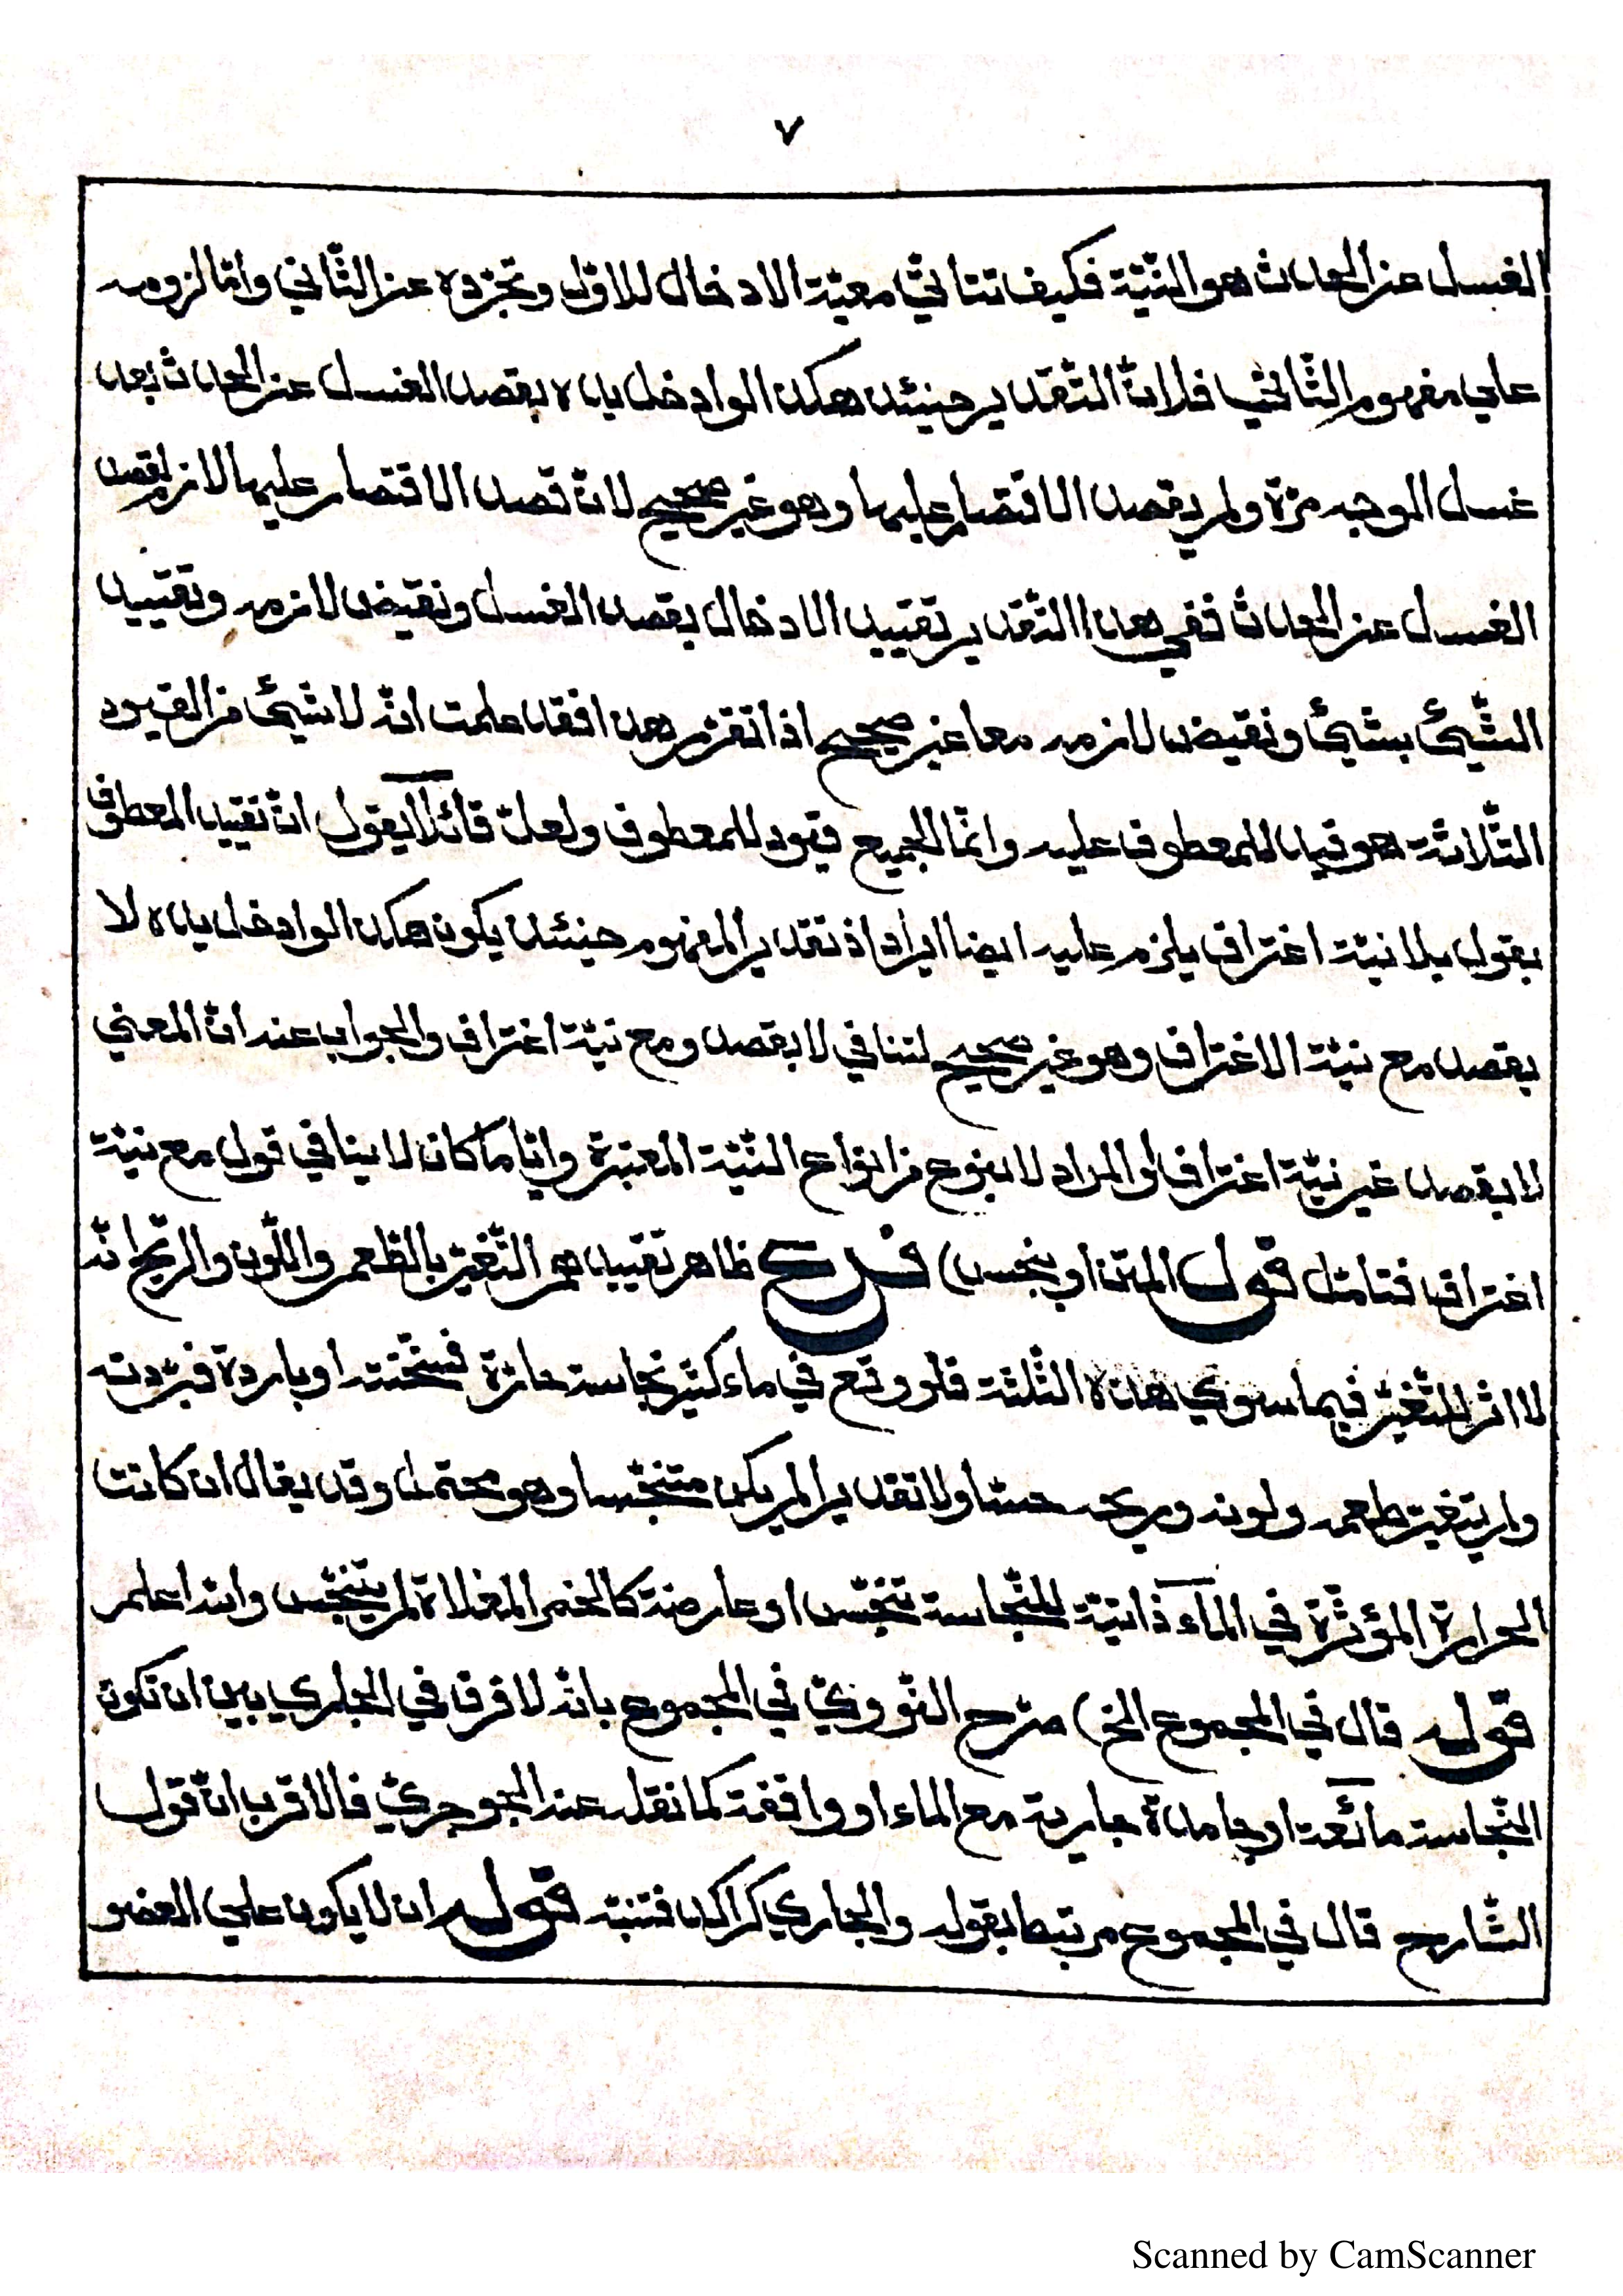 ٧
الغسل عن الحدث هو النّيّة فكيف تتأتّى معيّة الادخال للاوّل وتجرّده عن الثّاني وامّا لزومه
علي مفهوم الثّاني فلانّ التّقدير حينئذ هكذا لو ادخل يده بقصد الغسل عن الحدث بعد
غسل الوجه مرّة ولم يقصد الاقتصار عليها وهو غير صحيح لانّ قصد الاقتصار عليها لازم لقصد
الغسل عن الحدث ففي هذا التّقدير تقييد الادخال بقصد الغسل ونقيض لازمه وتقييد
الشّيئ بشيئ ونقيض لازمه معا غير صحيح اذا تقرّر هذا فقد علمت انّه لا شيئ من القيود
الثّلاثة هو قيد للمعطوف عليه وانّما الجميع قيود للمعطوف ولعلّ قائلا يقول انّ تقييد المعطوف
بقوله بلا نيّة اغتراف يلزم عليه ايضا ايراد اذ تقدير المفهوم حينئذ يكون هكذا لو ادخل يده لا
بقصد مع نيّة الاغتراف وهو غير صحيح لتنافي لا بقصد ومع نيّة اغتراف والجواب عنه انّ المعني
لا بقصد غير نيّة اغتراف او المراد لا بنوع من انواع النّيّة المعتبرة وايّا ما كان لا ينافي قوله مع نيّة
اغتراف فتامّل قول المتن او بنجس) فرع ظاهر تقييدهم التّغيّر بالطّعم واللّون والرّيح انّه
لا اثر للتّغيّر فيما سوي هذه الثّلثة فلو وقع في ماء كثير نجاسة حارّة فسخّنته او باردة فبرّدته
ولم يتغيّر طعمه ولونه وريحه حسّا ولا تقديرا لم يكن متنجّسا وهو محتمل وقد يقال ان كانت
الحرارة المؤثّرة في المآء ذاتيّة للنّجاسة تنجّس او عارضة كالخمر المغلاة لم يتنجّس والله اعلم
قوله قال في المجموع الخ) صرّح النّوويّ في المجموع بانّه لا فرق في الجاري بين ان تكون
النّجاسة مائعة او جامدة جارية مع الماء او واقفة كما نقله عنه الجوجريّ فالاقرب انّ قول
الشّارح قال في المجموع مرتبط بقوله والجاري كراكد فتنبّه قوله ان لا يكون علي العضو
Scanned by CamScanner